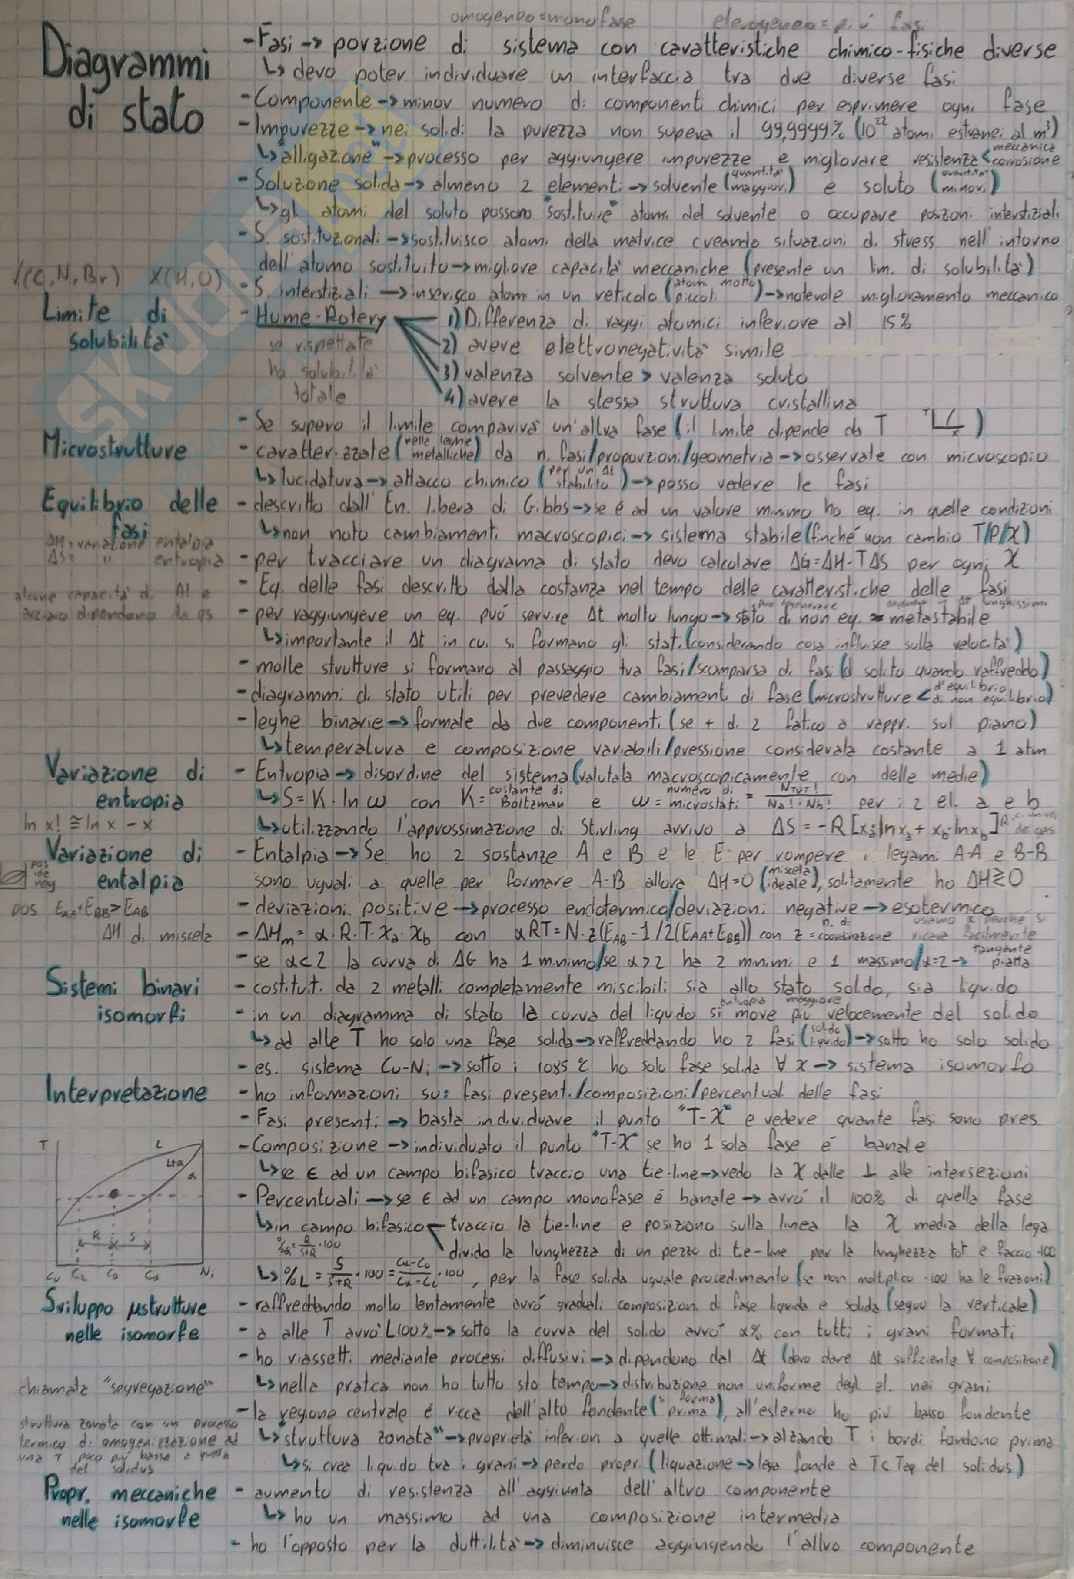 omogeneo = monofase eterogeneo = più fasi
Diagrammi di stato
- Fasi -> porzione di sistema con caratteristiche chimico-fisiche diverse
↳ devo poter individuare un interfaccia tra due diverse fasi
- Componente -> minor numero di componenti chimici per esprimere ogni fase
- Impurezze -> nei solidi la purezza non supera il 99,9999% (10²² atomi estranei al m³)
↳ "alligazione" -> processo per aggiungere impurezze e migliorare resistenza < meccanica corrosione
- Soluzione solida -> almeno 2 elementi -> solvente (quantità maggiori) e soluto (quantità minori)
↳ gli atomi del soluto possono "sostituire" atomi del solvente o occupare posizioni interstiziali
- S. sostituzionali -> sostituisco atomi della matrice creando situazioni di stress nell'intorno
dell'atomo sostituito -> migliore capacità meccaniche (presente un lim. di solubilità)
√(C, N, Br) X(H, O)
- S. interstiziali -> inserisco atomi in un reticolo (atomi molto piccoli) -> notevole miglioramento meccanico
Limite di solubilità
- Hume-Rotery 1) Differenza di raggi atomici inferiore al 15%
se rispettate ha solubilità totale
2) avere elettronegatività simile
3) valenza solvente > valenza soluto
4) avere la stessa struttura cristallina
- Se supero il limite comparirà un'altra fase (il limite dipende da T)
Microstrutture
- caratterizzate (nelle leghe metalliche) da n. fasi/proporzioni/geometria -> osservate con microscopio
↳ lucidatura -> attacco chimico (per un Δt stabilito) -> posso vedere le fasi
Equilibrio delle fasi
- descritto dall'En. libera di Gibbs -> se è ad un valore minimo ho eq. in quelle condizioni
↳ non noto cambiamenti macroscopici -> sistema stabile (finché non cambio T/P/X)
ΔH = variazione entalpia
ΔS = " entropia
- per tracciare un diagrama di stato devo calcolare ΔG=ΔH-TΔS per ogni X
- Eq. delle fasi descritto dalla costanza nel tempo delle caratteristiche delle fasi
alcune capacità di Al e acciaio dipendono da
- per raggiungere un eq. può servire Δt molto lungo -> stato di non eq. ≈ metastabile
↳ importante il Δt in cui si formano gli stati (considerando cosa influisce sulla velocità)
- molte strutture si formano al passaggio tra fasi/scomparsa di fasi (di solito quando raffreddo)
- diagrammi di stato utili per prevedere cambiamenti di fase (microstrutture < d'equilibrio di non equilibrio)
- leghe binarie -> formate da due componenti (se + di 2 fatico a rappr. sul piano)
↳ temperatura e composizione variabili/pressione considerata costante a 1 atm
Variazione di entropia
- Entropia -> disordine del sistema (valutata macroscopicamente, con delle medie)
↳ S=K·ln ω con K = costante di Boltzman e ω = numero di microstati = N_TOT!/(Na!·Nb!) per i 2 el. a e b
ln x! ≅ ln x - x
↳ utilizzando l'approssimazione di Stirling arrivo a ΔS = -R [xa ln xa + xb ln xb]
Variazione di entalpia
- Entalpia -> Se ho 2 sostanze A e B e le E per rompere i legami A-A e B-B
sono uguali a quelle per formare A-B allora ΔH=0 (miscela ideale), solitamente ho ΔH≷0
pos E_AA+E_BB>E_AB
- deviazioni positive -> processo endotermico/deviazioni negative -> esotermico
ΔH di miscela
- ΔHm = α·R·T·Xa·Xb con αRT=N·z(E_AB-1/2(E_AA+E_BB)) con z = n. di coordinazione
- se α<2 la curva di ΔG ha 1 minimo/se α>2 ha 2 minimi e 1 massimo/α=2 -> tangente piatta
Sistemi binari isomorfi
- costituiti da 2 metalli completamente miscibili sia allo stato solido, sia liquido
- in un diagramma di stato la curva del liquido si move più velocemente del solido
entropia maggiore
↳ ad alte T ho solo una fase solida -> raffreddando ho 2 fasi (solido liquido) -> sotto ho solo solido
- es. sistema Cu-Ni -> sotto i 1085 °C ho solo fase solida ∀ x -> sistema isomorfo
Interpretazione
- ho informazioni su: fasi presenti/composizioni/percentuali delle fasi
- Fasi presenti -> basta individuare il punto "T-X" e vedere quante fasi sono pres.
- Composizione -> individuato il punto "T-X" se ho 1 sola fase è banale
↳ se ∈ ad un campo bifasico traccio una tie-line -> vedo la X dalle ⊥ alle intersezioni
- Percentuali -> se ∈ ad un campo monofase è banale -> avrò il 100% di quella fase
↳ in campo bifasico < traccio la tie-line e posiziono sulla linea la X media della lega
divido la lunghezza di un pezzo di tie-line per la lunghezza tot e faccio ·100
%α = R/(S+R)·100
↳ %L = S/(S+R)·100 = (Cα-C₀)/(Cα-C_L)·100, per la fase solida uguale procedimento (se non moltiplico ·100 ho le frazioni)
T L L+α α R S
Cu C_L C₀ Cα Ni
Sviluppo μstrutture nelle isomorfe
- raffreddando molto lentamente avrò graduali composizioni di fase liquida e solida (seguo la verticale)
- a alte T avrò L100% -> sotto la curva del solido avrò α% con tutti i grani formati
- ho riassetti mediante processi diffusivi -> dipendono dal Δt (devo dare Δt sufficiente ∀ composizione)
chiamata "segregazione"
↳ nella pratica non ho tutto sto tempo -> distribuzione non uniforme degli el. nei grani
- la regione centrale è ricca dell'alto fondente (si forma prima), all'esterno ho più basso fondente
struttura zonata con un processo
termico di omogenizzazione ad
una T poco più bassa a quella
del solidus
↳ "struttura zonata" -> proprietà inferiori a quelle ottimali -> alzando T i bordi fondono prima
↳ si crea liquido tra i grani -> perdo propr. (liquazione -> lega fonde a T< Teq del solidus)
Propr. meccaniche nelle isomorfe
- aumento di resistenza all'aggiunta dell'altro componente
↳ ho un massimo ad una composizione intermedia
- ho l'opposto per la duttilità -> diminuisce aggiungendo l'altro componente